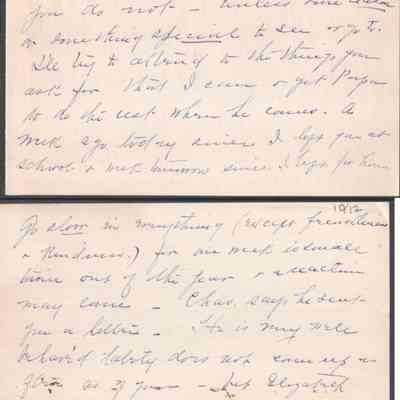 you do not – unless some
or something special to see or go to.
I'll try to attend to the things you
ask for that I can or get Papa
to do the rest when he comes. A
week ago today since I left you at
school & week tomorrow since I left for home
10/12
Go slow in everything (except friendliness
& Kindness.) for one week is
time out of the year & a reaction
may come – Chas, says he sent
you a letter – He is very well
behav'd lately does not
as if you – but Elizabeth